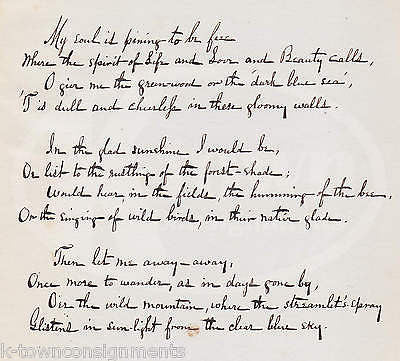 My soul is pining to be free
Where the spirit of Life and Love and Beauty calls,
O give me the greenwood or the dark blue sea,
T'is dull and cheerless in these gloomy walls.
In the glad sunshine I would be,
Or list to the rustling of the forest-shade;
Would hear in the fields, the humming of the bee,
Or the singing of wild birds, in their native glade.
Then let me away-away,
Once more to wander, as in days gone by,
O'er the wild mountain, where the streamlet's spray
Glistens in sun-light from the clear blue sky.
k-townconsignments